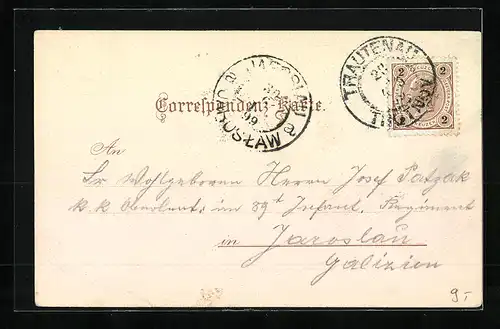 TRAUTENAU
2 2
2 2
JAROSLAU
99
JAROSŁAW
Correspondenz-Karte.
An
Sr Wohlgeboren Herrn Josef Patzak
k. k. Oberleut. im 89t Infant. Regiment
in Jaroslau
Galizien
9.-